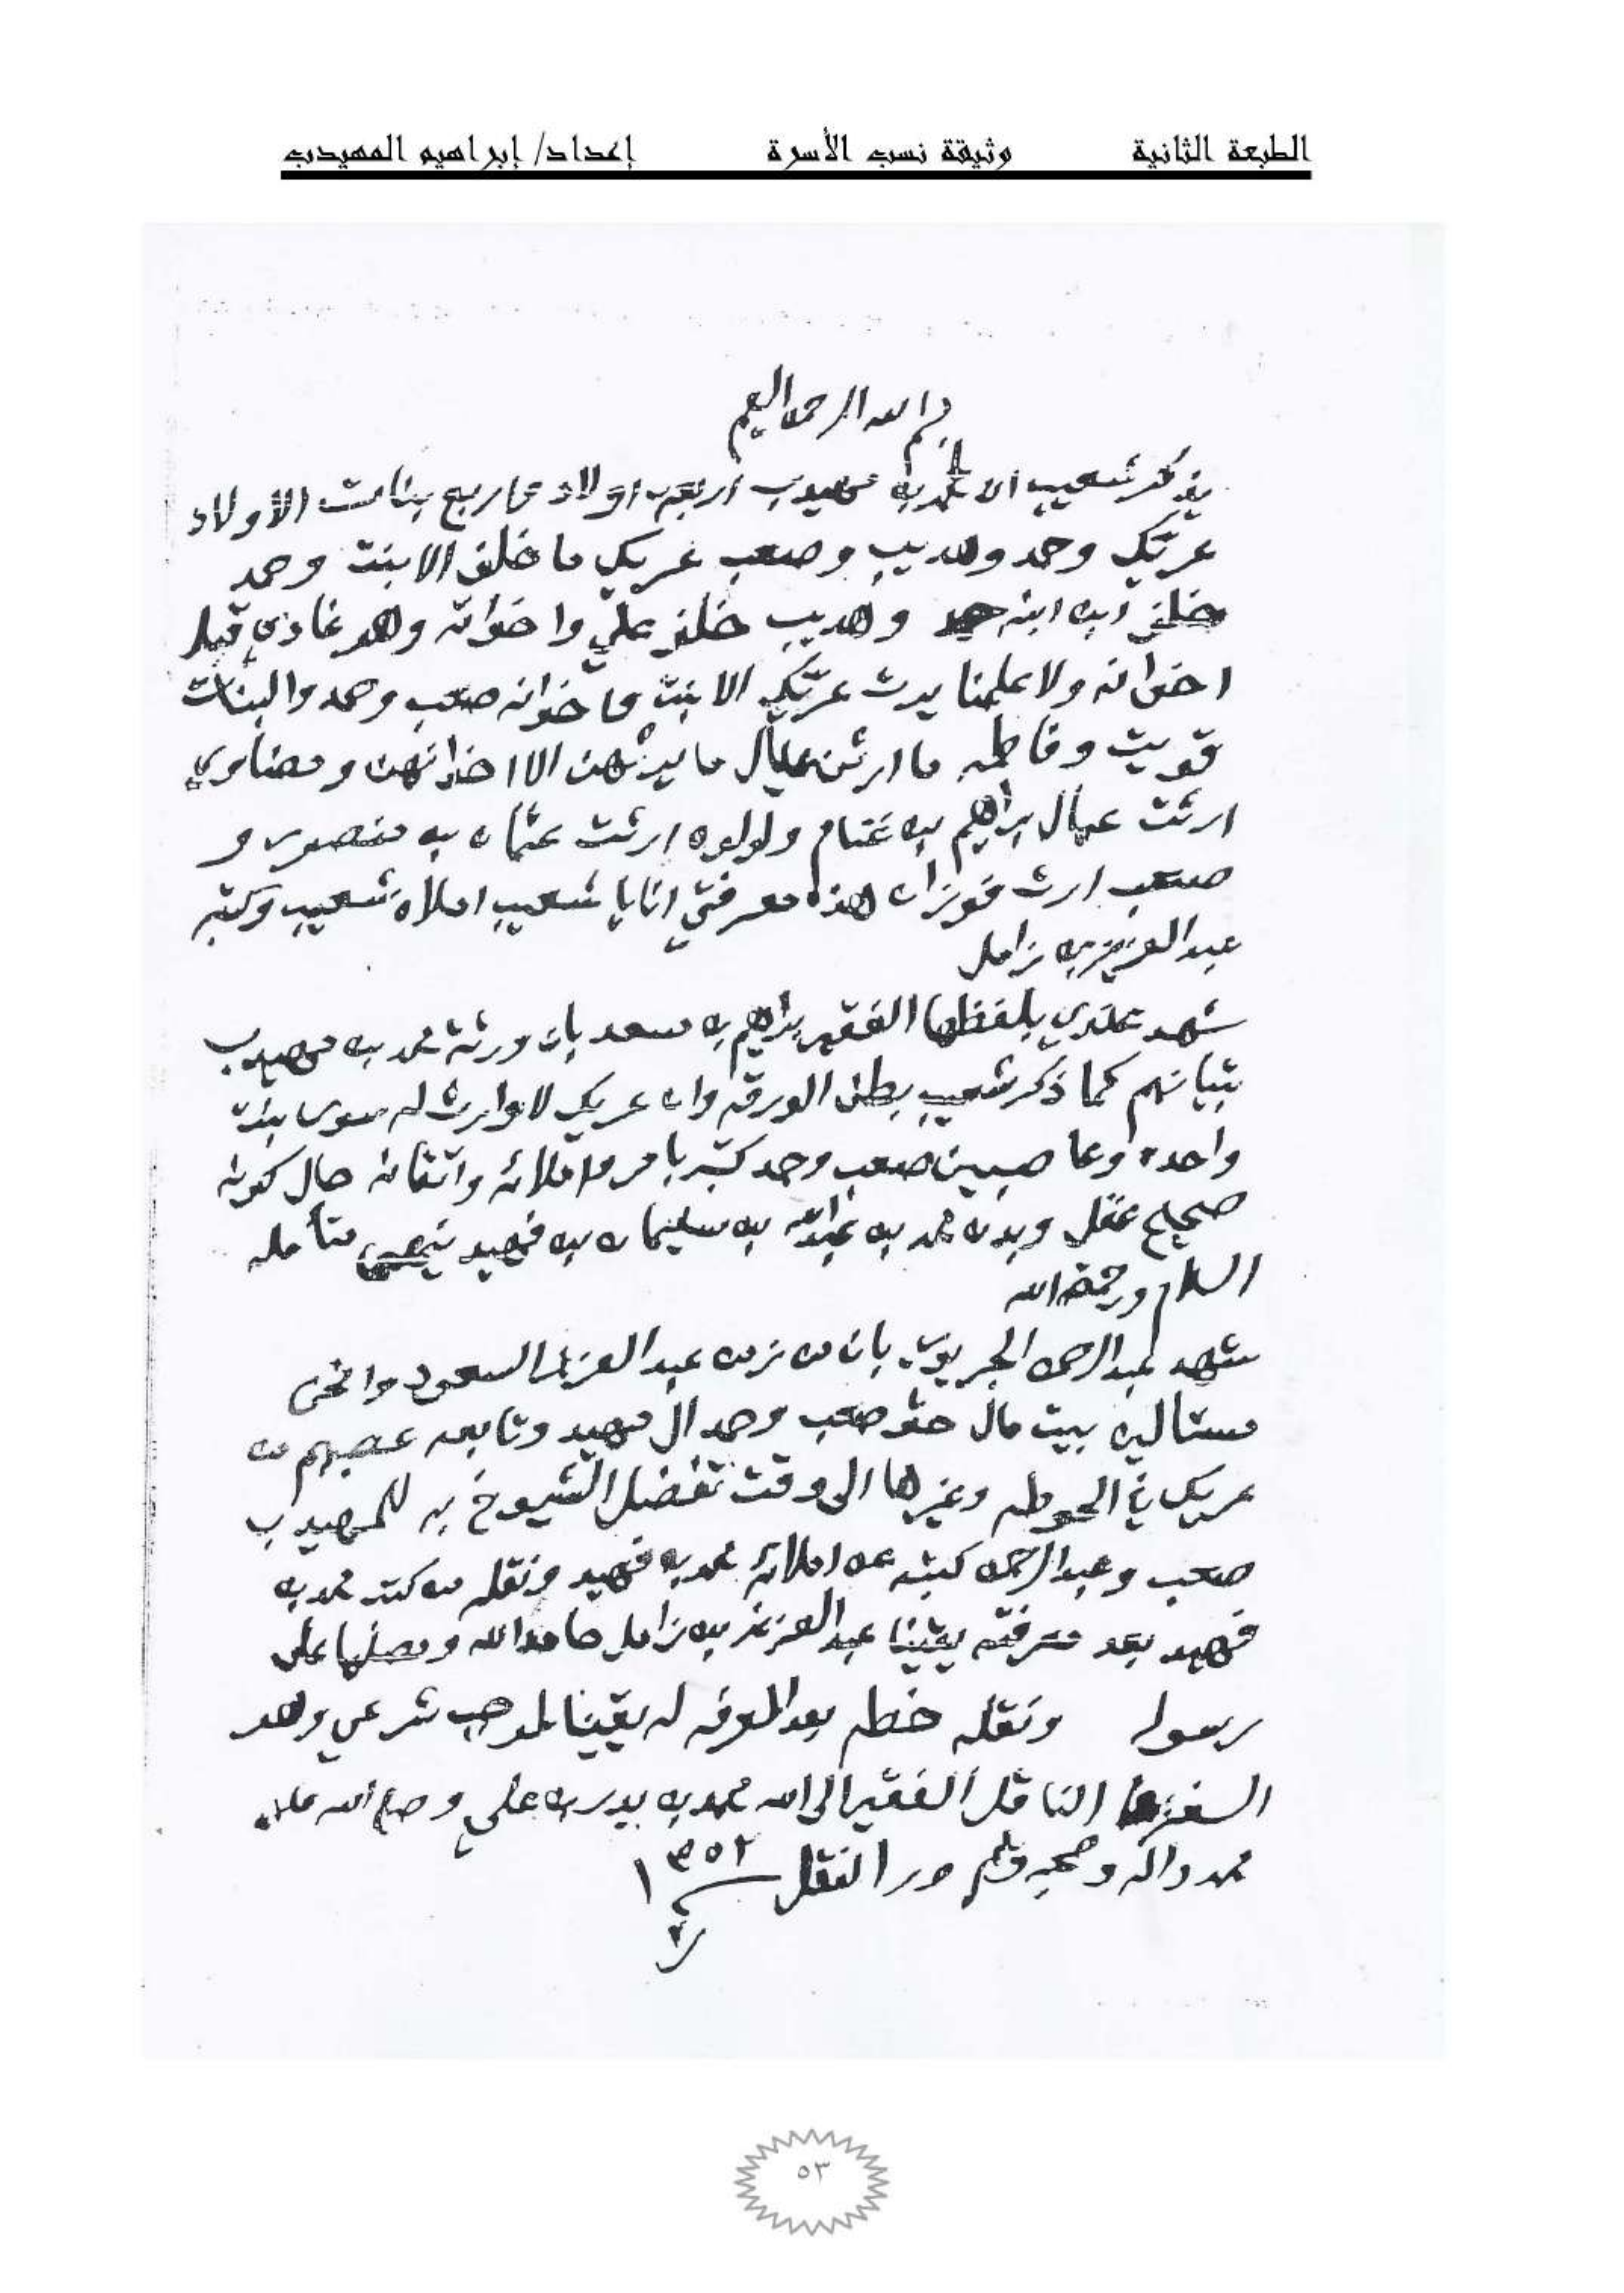 الطبعة الثانية وثيقة نسب الأسرة إعداد/ إبراهيم المهيدب
بسم الله الرحمن الرحيم
يذكر شعيب ان لمحمد بن مهيدب اربعة اولاد واربع بنات الاولاد
عريّك وحمد وهديب وصعب عريك ما خلف الا بنت وحمد
خلف ابن ابنه حمد وهديب خلف علي واخوانه وهو غادي قبل
اخوانه ولا علمنا يرث عريّك الا بنت واخوانه صعب وحمد والبنات
قويت وفاطمه ما ارثن عيال ما يرثهن الا اخوانهن ومضاوي
ارثت عيال ابراهيم بن غنام ولولوه ارثت عثمان بن منصور و
صعب ارث فوزان هذه معرفتي انايا شعيب املاه شعيب وكتبه
عبدالعزيز بن زامل
شهد عندي بلفظها الفقير ابراهيم بن سعد بان ورثة محمد بن مهيدب
بتيانهم كما ذكر شعيب بطن الورقه وان عريك لا وارث له سوى بنت
واحده وعاصبين صعب وحمد كتبه بامره واملائه واتقانه حال كونه
صحيح عقل وبدن محمد بن عبدالله بن سليمان بن فهيد متأمله
السلام ورحمة الله
شهد عبدالرحمن الجريوي بان من زمن عبدالعزيز السعود وانحن
مستالين بيت مال حق صعب وحمد ال مهيد وتابعه عصبهم من
عريك في الحوطه وغيرها الى وقت تفضل الشيوخ به للمهيدب
صعب وعبدالرحمن كتبه عن املائه محمد بن فهيد ونقله من كتب محمد بن
فهيد بعد معرفته يقينا عبدالعزيز بن زامل حامدا لله ومصليا على
رسوله ونقله خطه بعد المعرفه له يقينا لموجب شرعي وهو
السفر الناقل الفقير الى الله محمد بن بدر بن علي وصلى الله على
محمد واله وصحبه وسلم حرر النقل ١٣٥٢
٥٣